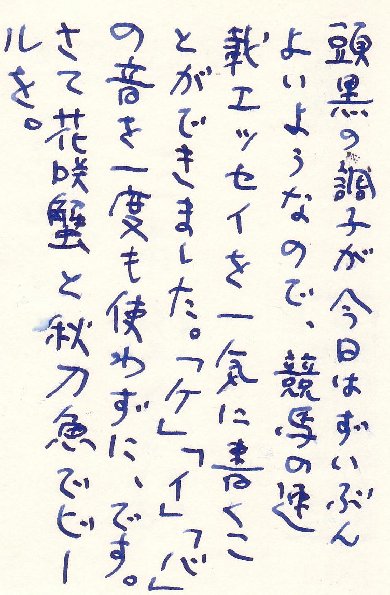 頭黒の調子が今日はずいぶん
よいようなので、競馬の連
載エッセイを一気に書くこ
とができました。「ケ」「イ」「バ」
の音を一度も使わずに、です。
さて花咲蟹と秋刀魚でビー
ルを。